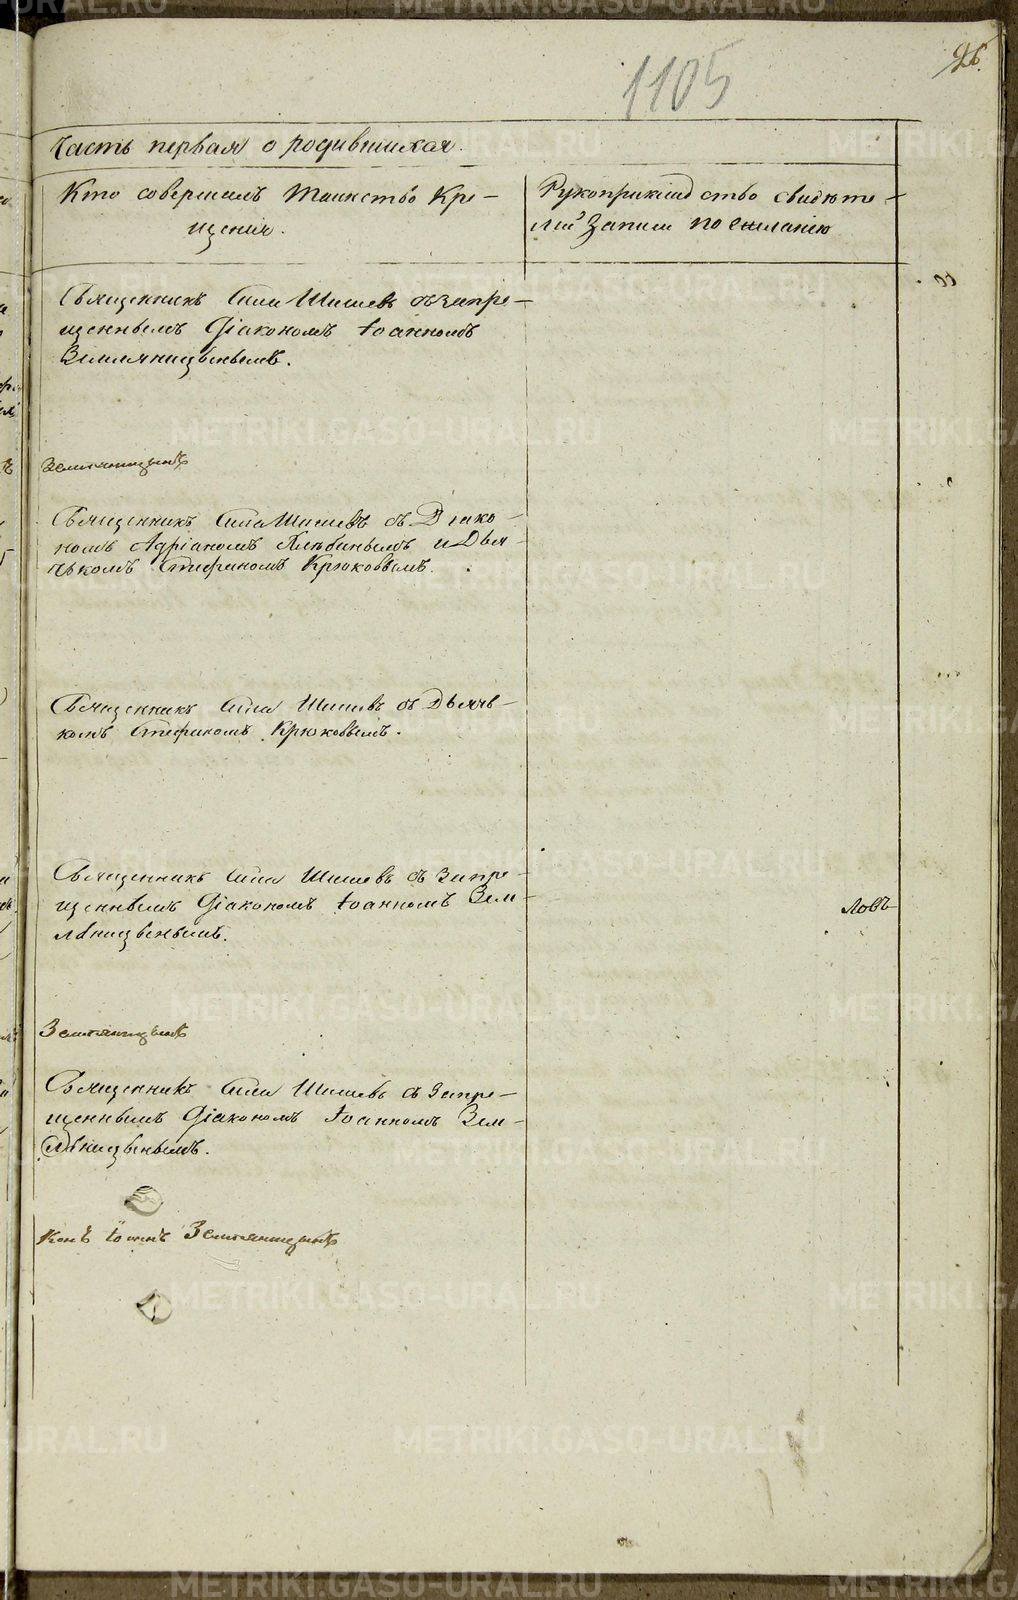 1105
96.
Часть первая о родившихся.
Кто совершилъ Таинство Кре-
щенія.
Рукоприкладство свидѣте-
лей записи по желанію
Священникъ Сила Шишевъ съ запре-
щеннымъ Діакономъ Іоанномъ
Земляницынымъ.
Земляницынъ
Священникъ Сила Шишевъ съ Діако-
номъ Адріаномъ и Дья-
чькомъ Стефаномъ Крюковымъ.
Священникъ Сила Шишевъ съ Дьячь-
комъ Стефаномъ Крюковымъ.
Священникъ Сила Шишевъ съ запре-
щеннымъ Діакономъ Іоанномъ Зем-
ляницынымъ.
ловъ
Земляницынъ
Священникъ Сила Шишевъ съ запре-
щеннымъ Діакономъ Іоанномъ Зем-
ляницынымъ.
конъ Іоаннъ Земляницынъ
METRIKI.GASO-URAL.RU